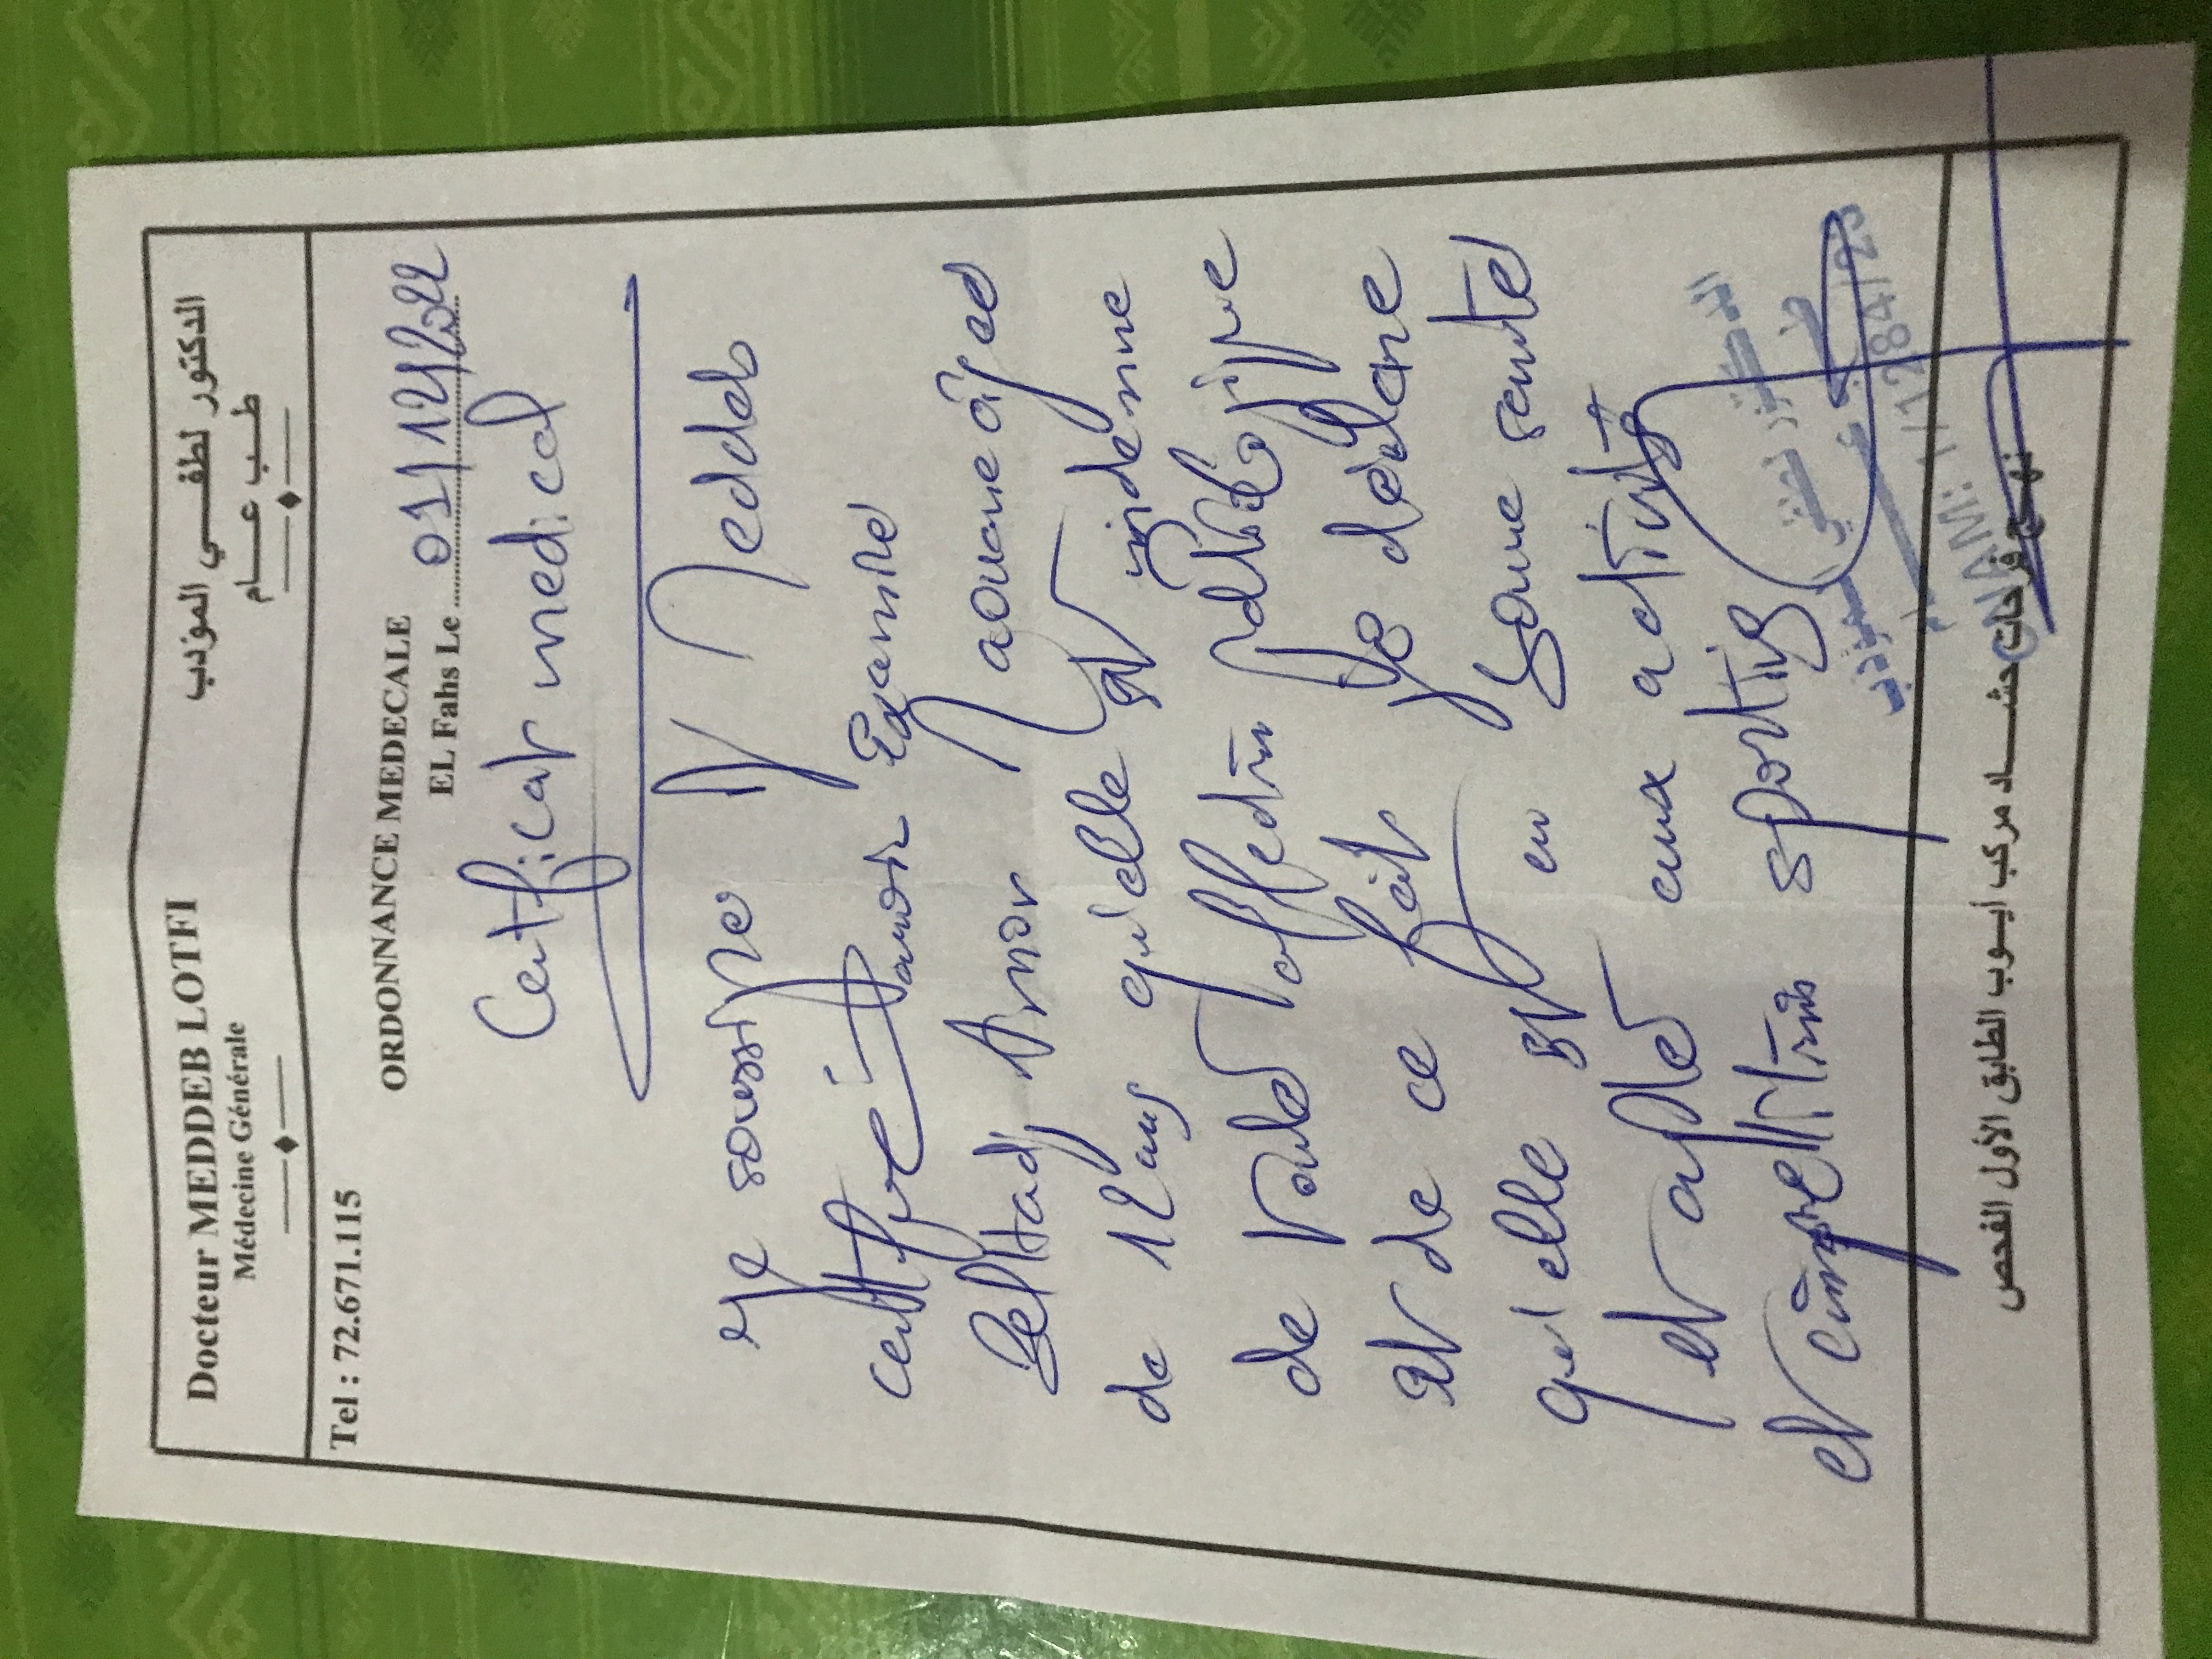 Docteur MEDDEB LOTFI
Médecine Générale
الدكتور لطفي المؤدب
طب عام
Tel : 72.671.115
ORDONNANCE MEDECALE
EL Fahs Le 01/12/2022
Certificat medical
Je soussigné Dr Meddeb
certifie avoir Examiné
Beltadj Amor agée
de 12 ans qu'elle est indemne
de toute affection
et de ce fait je déclare
qu'elle est en bonne santé
et apte aux activités
et compétitions sportives
الدكتور لطفي المؤدب
CNAM: 1/12841/23
نهج فرحات حشاد مركب أيوب الطابق الأول الفحص